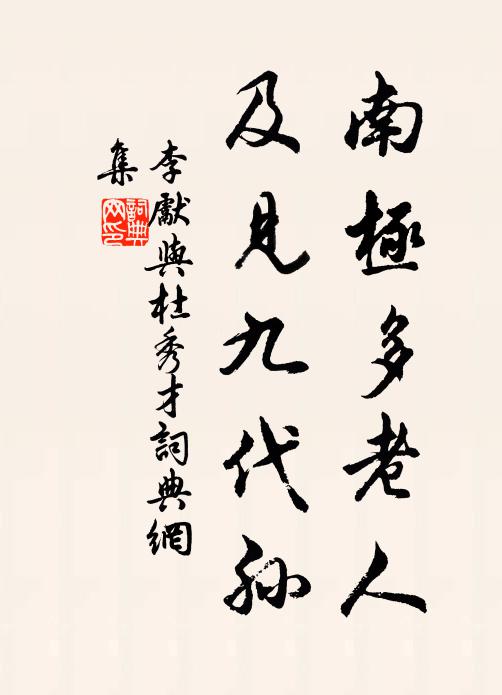 南極多老人
及見九代孫
李獻與杜秀才詞典網
集
詞典網印